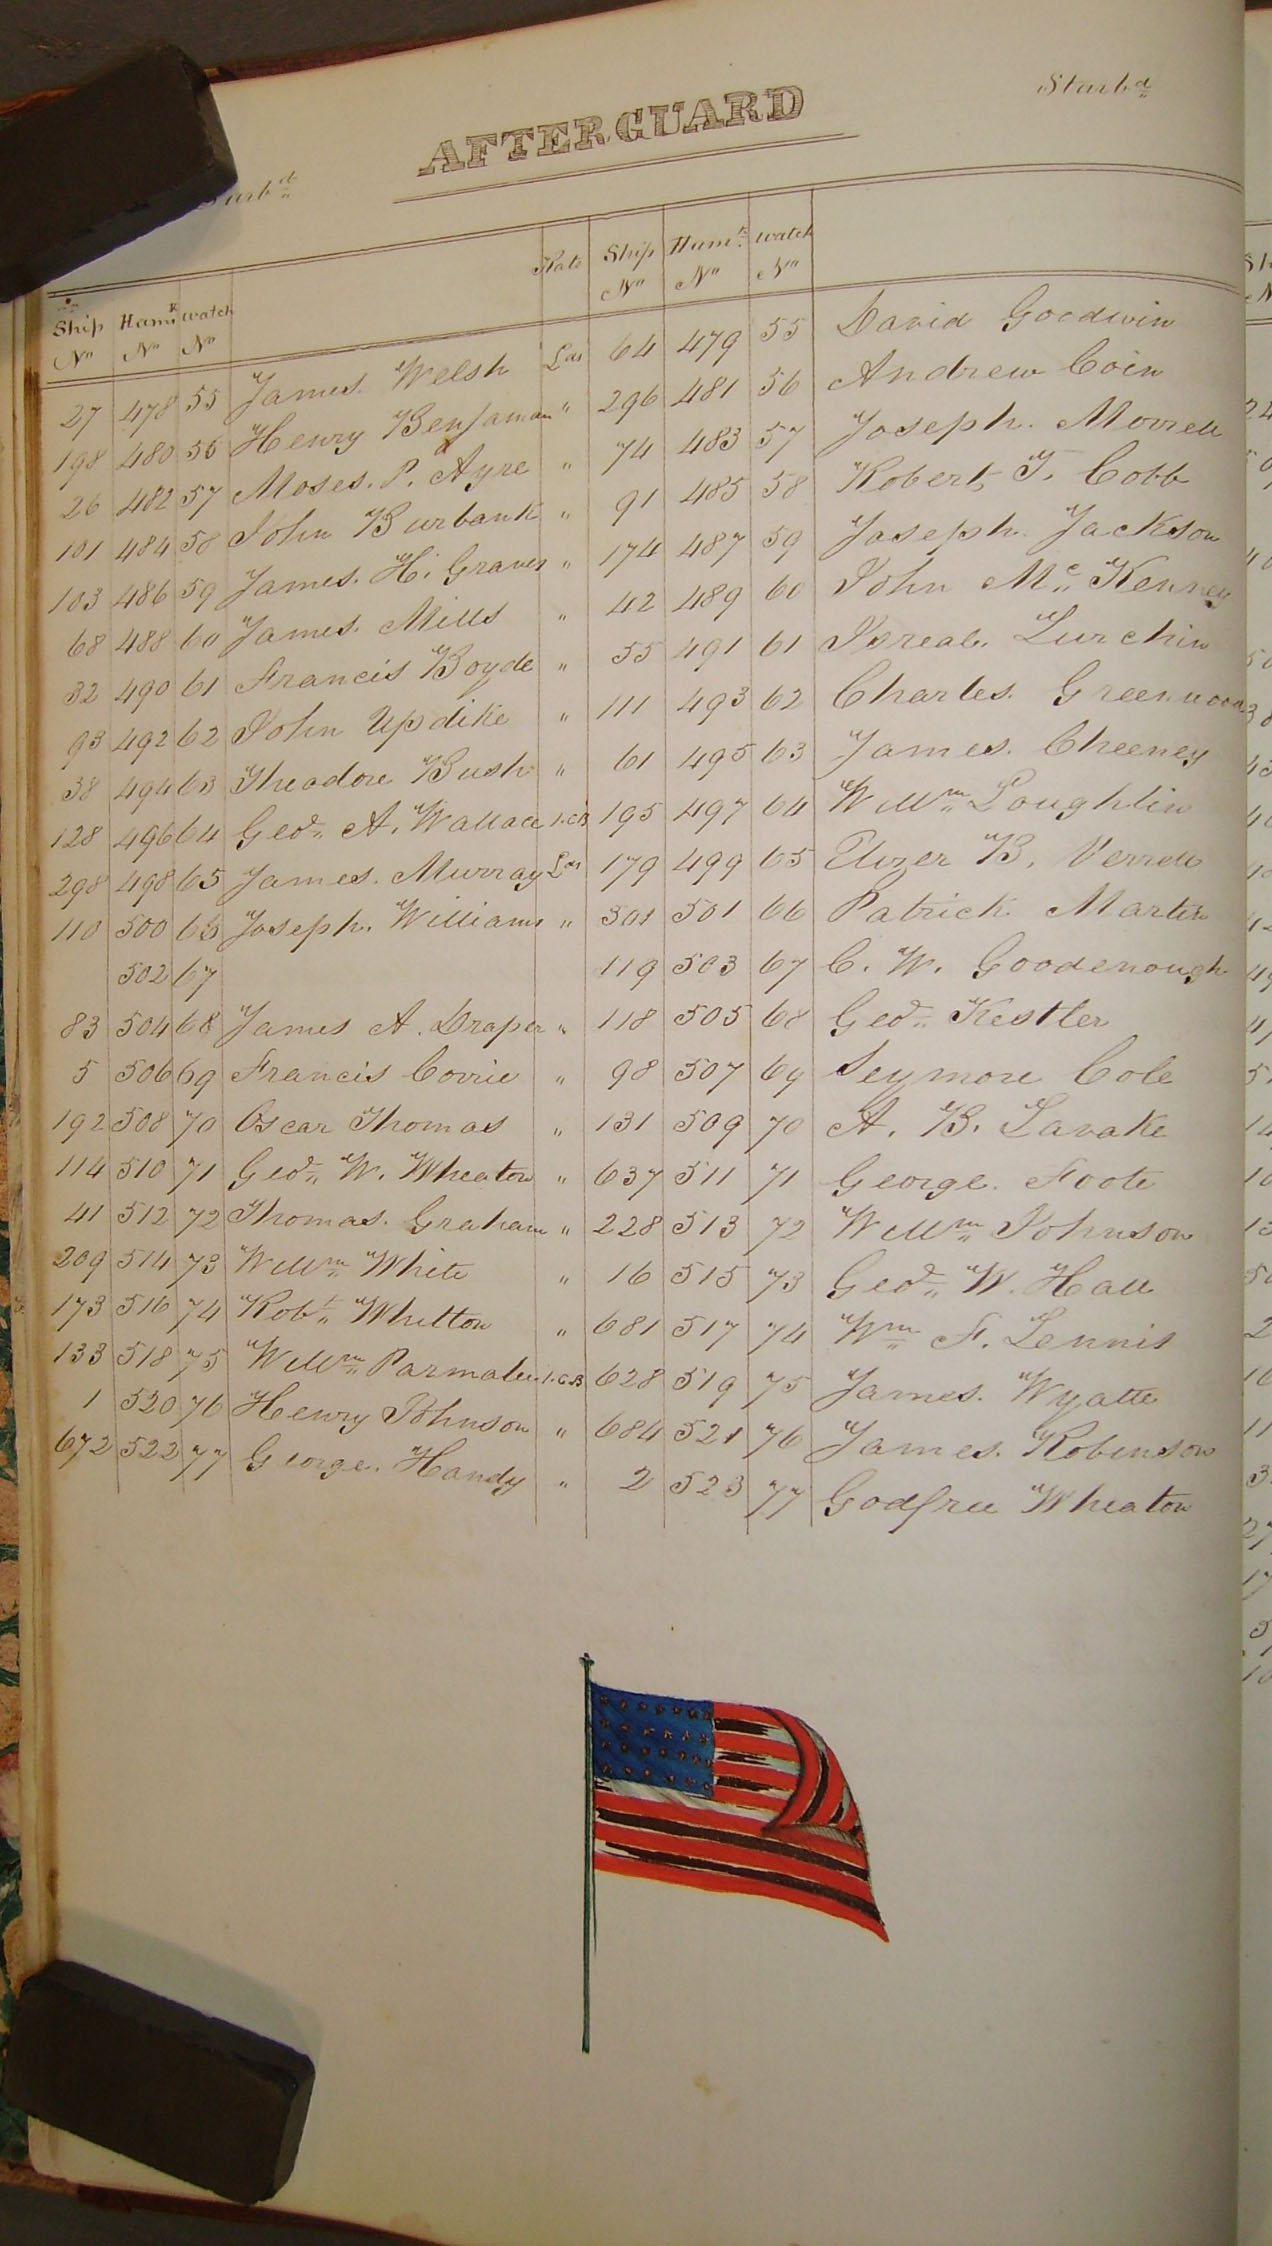 AFTERGUARD
Starbd
Ship Hamk watch Rate Ship Hamk watch
No No No No No No
27 478 55 James. Welsh Lds 64 479 55 David Goodwin
198 480 56 Henry Benjaman " 296 481 56 Andrew Coin
26 482 57 Moses. P. Ayre " 74 483 57 Joseph. Morrell
101 484 58 John Burbank " 91 485 58 Robert T. Cobb
103 486 59 James. H. Graves " 174 487 59 Joseph. Jackson
68 488 60 James. Mills " 42 489 60 John Mc Kenney
32 490 61 Francis Boyde " 55 491 61 Isreal. Lurchin
93 492 62 John Updike " 111 493 62 Charles. Greenwood
38 494 63 Theodore Bush " 61 495 63 James. Cheeney
128 496 64 Geo. A. Wallace 1.C.B 195 497 64 Willm Loughlin
298 498 65 James. Murray Lds 179 499 65 B. Verrell
110 500 66 Joseph. Williams " 301 501 66 Patrick Martin
502 67 119 503 67 C. W. Goodenough
83 504 68 James A. Draper " 118 505 68 Geo. Kestler
5 506 69 Francis Corrie " 98 507 69 Seymore Cole
192 508 70 Oscar Thomas " 131 509 70 A. B. Lavake
114 510 71 Geo. W. Wheaton " 637 511 71 George. Foote
41 512 72 Thomas. Graham " 228 513 72 Willm Johnson
209 514 73 Willm White " 16 515 73 Geo. W. Hall
173 516 74 Robt Whitton " 681 517 74 Wm F. Lennis
133 518 75 Willm Parmalee 1.C.B 628 519 75 James. Wyatte
1 520 76 Henry Johnson " 684 521 76 James. Robinson
672 522 77 George. Handy " 2 523 77 Godfree Wheaton